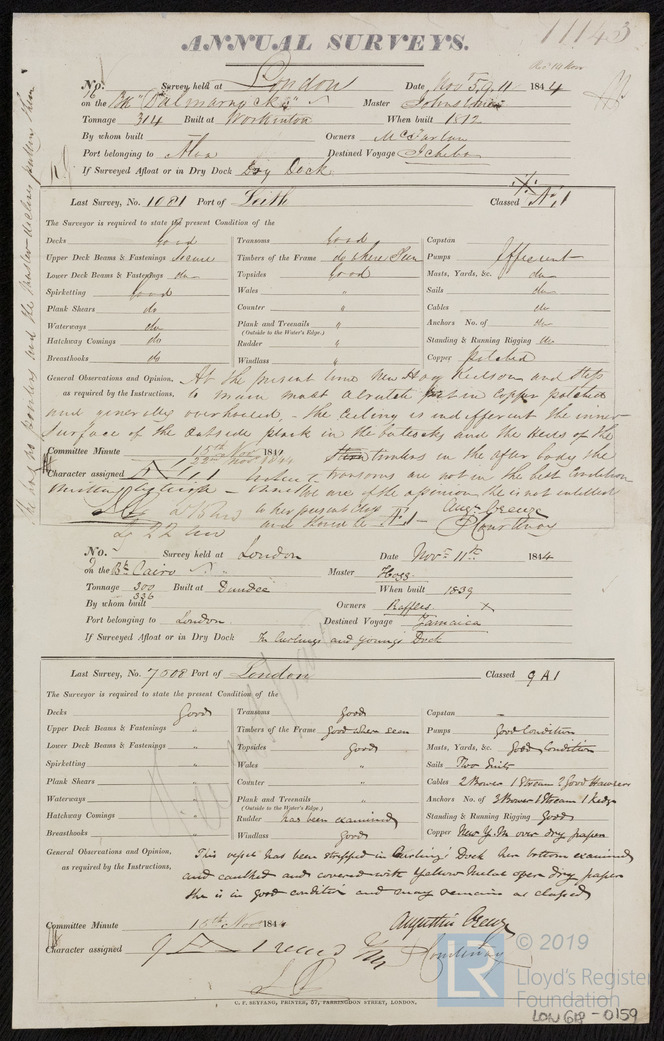 11143
ANNUAL SURVEYS.
No. Survey held at London Date Novr 5, 9, 11 1844
on the Bk "Dalmarnock" Master Johnstone
Tonnage 314 Built at Workinton When built 1812
By whom built Owners McFarlan
Port belonging to Aloa Destined Voyage Ichaboe
If Surveyed Afloat or in Dry Dock Dry Dock
Last Survey, No. 1081 Port of Leith Classed Æ 1
The Surveyor is required to state the present Condition of the
Decks Good Transoms Good Capstan
Upper Deck Beams & Fastenings Secure Timbers of the Frame do where Seen Pumps Efficient
Lower Deck Beams & Fastenings do Topsides Good Masts, Yards, &c. do
Spirketting Good Wales " Sails do
Plank Shears do Counter " Cables do
Waterways do Plank and Treenails " Anchors No. of do
(Outside to the Water's Edge.)
Hatchway Comings do Rudder " Standing & Running Rigging do
Breasthooks do Windlass " Copper patched
General Observations and Opinion, At the present time New Hog Keelson and Step
as required by the Instructions. to main mast put in Copper patched
and generally overhauled, - the Ceiling is indifferent the inner
Surface of the outside plank in the buttocks and the heels of the
Committee Minute 15th Nov 1844 timbers in the after body the
22nd Nov 1844
Character assigned Æ 1 transoms are not in the best Condition
we are of the opinion she is not intitled
to her present Class Augn Creuze
and Æ 1 - Courtenay
No. Survey held at London Date Novr 11th 1844
on the Bk Cairo Master Hogg
Tonnage 300 Built at Dundee When built 1839
336
By whom built Owners Rafflers
Port belonging to London Destined Voyage Jamaica
If Surveyed Afloat or in Dry Dock In Curlings and Youngs Dock
Last Survey, No. 7008 Port of London Classed 9 A 1
The Surveyor is required to state the present Condition of the
Decks Good Transoms Good Capstan -
Upper Deck Beams & Fastenings " Timbers of the Frame Good where seen Pumps Good Condition
Lower Deck Beams & Fastenings " Topsides Good Masts, Yards, &c. Good Condition
Spirketting " Wales " Sails Two Suits
Plank Shears " Counter " Cables 2 Bower 1 Stream 2 Good Hawsers
Waterways " Plank and Treenails " Anchors No. of 3 Bower 1 Stream 1 Kedge
(Outside to the Water's Edge.)
Hatchway Comings " Rudder has been examined Standing & Running Rigging Good
Breasthooks " Windlass Good Copper New Y. M. over dry paper
General Observations and Opinion, This vessel has been stripped in Curling's Dock her bottom examined
as required by the Instructions, and caulked and covered with Yellow Metal over dry paper
she is in good condition and may remain as classed
Committee Minute 15th Nov 1844 Augustin Creuze
Character assigned 9 A 1 Courtenay
© 2019
LR Lloyd's Register
Foundation
C. F. SEYFANG, PRINTER, 57, FARRINGDON STREET, LONDON.
LON 618 - 0159